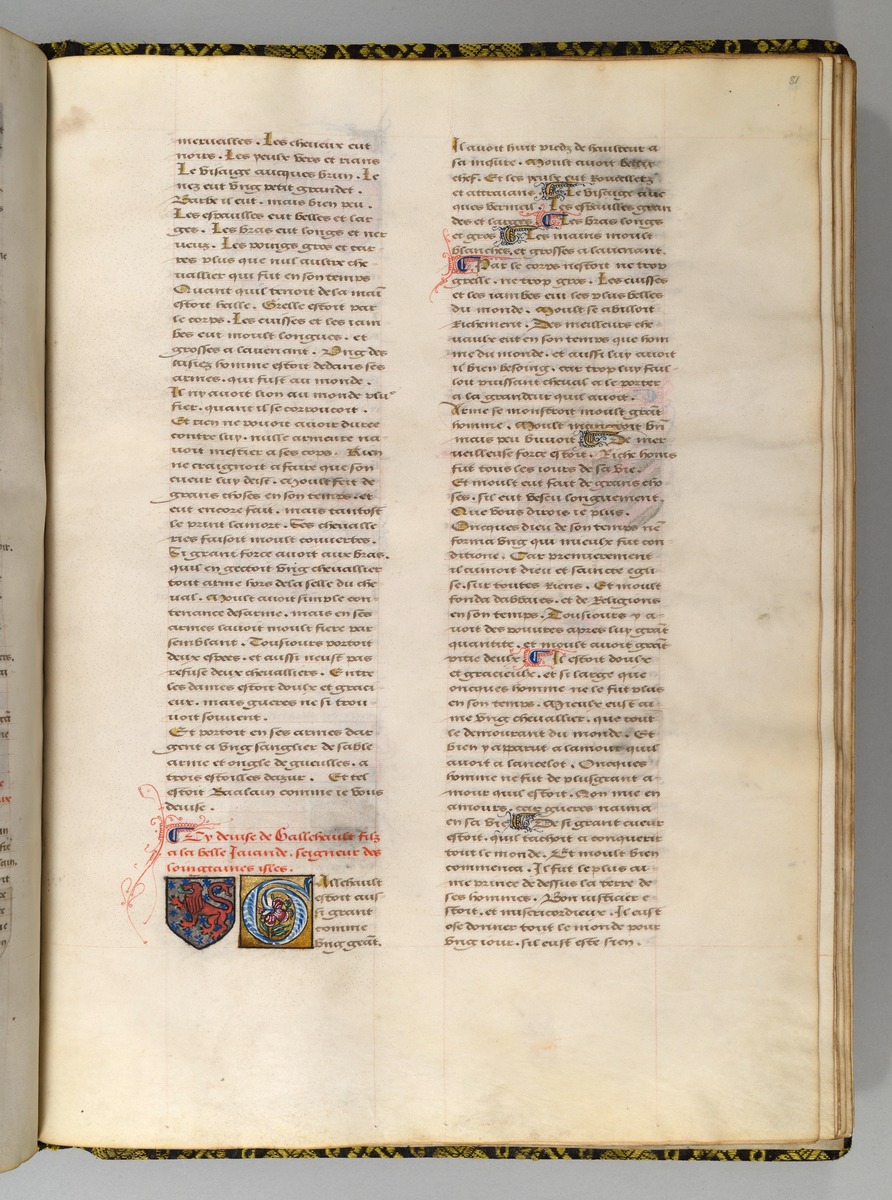 81
merveilles. Les cheveux eut
noirs. Les yeulx vers et rians
Le visaige aucques brun. Le
nez eut vng petit grandet.
Barbe il eut. mais bien peu.
Les espaulles eut belles et lar
ges. Les bras eut longs et ner
ueux. Les poings gros et car
res plus que nul aultre che
uallier qui fut en son temps
Quant quil tenoit de la main
estoit baille. Grelle estoit par
le corps. Les cuisses et les iam
bes eut moult longues. et
grosses a lauenant. Vng des
aisiez homme estoit dedans ses
armes. qui fust au monde.
Il ny auoit lion au monde plus
fier. quant il se corroucoit.
Et rien ne pouoit auoir duree
contre luy. nulle armeure na
uoit mestier a ses cops. Rien
ne craignoit a faire que son
cueur luy deist. Moult feit de
grans choses en son temps. et
eut encore fait. mais tantost
le print la mort. Ses cheualle
ries faisoit moult couuertes.
Si grant force auoit aux bras.
quil en gectoit vng cheuallier
tout arme hors de la selle du che
ual. Moult auoit simple con
tenance desarme. mais en ses
armes lauoit moult fiere par
semblant. Tousiours portoit
deux espees. et aussi neust pas
refuse deux cheualliers. Entre
les dames estoit doulx et graci
eux. mais gueres ne si trou
uoit souuent.
Et portoit en ses armes dar
gent a vng sanglier de sable
arme et ongle de gueulles. a
trois estoilles dazur. Et tel
estoit Baalain comme ie vous
deuise.
Cy deuise de Gallehault filz
a la belle Jaiande. seigneur des
loingtaines isles.
Gallehault
estoit aus
si grant
comme
vng grãt.
Il auoit huit piedz de haulteur a
sa mesure. Moult auoit bellet
chef. Et les yeulx eut Rouceletz
et attraians. Le visaige auc
ques vermeil. Les espaulles gran
des et larges. Les bras longs
et gros. Les mains moult
blanches. et grosses a lauenant.
Par le corps nestoit ne trop
grelle. ne trop gros. Les cuisses
et les iambes eut les plus belles
du monde. Moult se abilloit
Richement. Des meilleurs che
uaulx eut en son temps que hom
me du monde. et aussi luy auoit
il bien besoing. car trop luy fail
loit puissant cheual a le porter
a la grandeur quil auoit.
Arme se monstroit moult grãt
homme. Moult mangeoit bñ
mais peu buuoit. De mer
ueilleuse force estoit. Riche homs
fut tous les iours de sa vie.
Et moult eut fait de grans cho
ses. sil eut vescu longuement.
Que vous diroie ie plus.
Oncques dieu de son temps ne
forma vng qui mieulx fut con
ditione. Car premierement
il aimoit dieu et saincte egli
se. sur toutes Riens. Et moult
fonda dabbaies. et de Religions
en son temps. Tousiours y a
uoit des pouures apres luy grãt
quantite. et moult auoit grãt
pitie deulx. Il estoit doulx
et gracieulx. et si large que
oncques homme ne le fut plus
en son temps. Mieulx eust ai
me vng cheuallier. que tout
le demourant du monde. Et
bien y a parut a lamour quil
auoit a lancelot. Oncques
homme ne fut de plus grant a
mour quil estoit. Non mie en
amours. car gueres naima
en sa vie. De si grant cueur
estoit. quil tachoit a conquerir
tout le monde. Et moult bien
commenca. Il fut le plus ai
me prince de dessus la terre de
ses hommes. Bon iusticier e
stoit. et misericordieux. Il eust
ose donner tout le monde pour
vng iour. sil eust este sien.